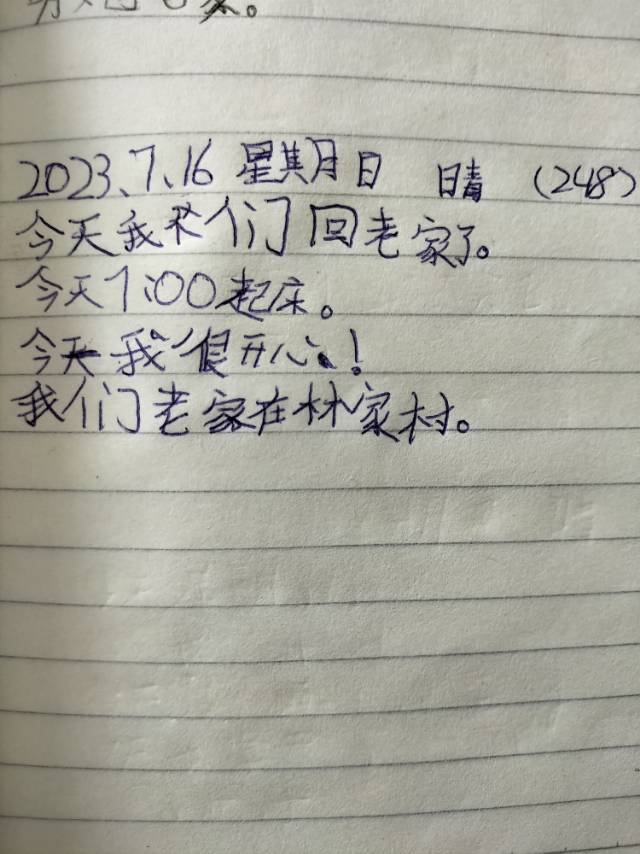 2023、7、16 星期日 晴 (248)
今天我们回老家了。
今天1:00起床。
今天我很开心!
我们老家在林家村。